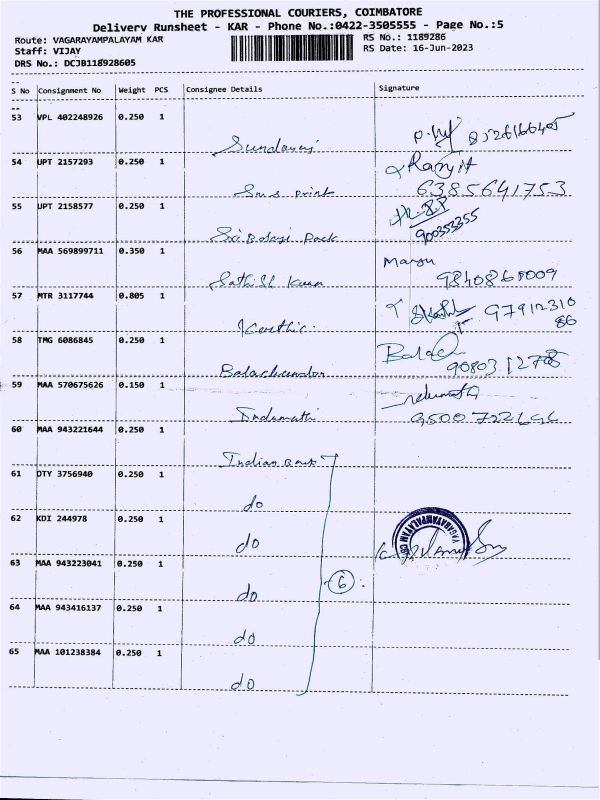 THE PROFESSIONAL COURIERS, COIMBATORE
Delivery Runsheet - KAR - Phone No.:0422-3505555 - Page No.:5
Route: VAGARAYAMPALAYAM KAR
RS No.: 1189286
Staff: VIJAY
RS Date: 16-Jun-2023
DRS No.: DCJB118928605
S No Consignment No Weight PCS Consignee Details Signature
53 VPL 402248926 0.250 1
Sundaraj
54 UPT 2157293 0.250 1 Ranjit
Sms print 6385641753
55 UPT 2158577 0.250 1
Sri Balaji Pack 900353355
56 MAA 569899711 0.350 1
Sathish Kumar 9840860009
57 MTR 3117744 0.805 1 97912310
Karthic 86
58 TMG 6086845 0.250 1
Balachandar
59 MAA 570675626 0.150 1 Indumathi
Indumathi
60 MAA 943221644 0.250 1
Indian Bank
61 DTY 3756940 0.250 1
do
62 KDI 244978 0.250 1 VAGARAYAMPALAYAM
do
63 MAA 943223041 0.250 1 6
do
64 MAA 943416137 0.250 1
do
65 MAA 101238384 0.250 1
do